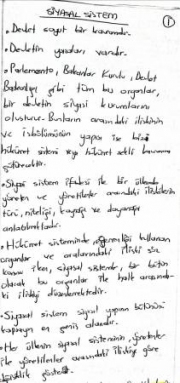 SİYASAL SİSTEM
1
• Devlet soyut bir kavramdır.
• Devletin yapıları vardır.
• Parlamento, Bakanlar Kurulu, Devlet
Başkanlığı gibi tüm bu organlar,
bir devletin siyasi kurumlarını
oluşturur. Bunların arasındaki ilişkinin
ve işbölümünün yapısı ise bizi
hükümet sistemi veya hükümet şekli kavramına
götürecektir.
• Siyasi sistem ifadesi ile bir ülkede
yöneten ve yönetilenler arasındaki ilişkilerin
türü, niteliği, kaynağı ve dayanağı
anlatılmaktadır.
• Hükümet sisteminde egemenliği kullanan
organlar ve aralarındaki ilişki söz
konusu iken, siyasal sistemde, bir bütün
olarak bu organlar ile halk arasında-
ki ilişki düzenlenmektedir.
• Siyasal sistem siyasi yapının bütününü
kapsayan en geniş alandır.
• Her ülkenin siyasal sisteminin, yönetenler
ile yönetilenler arasındaki ilişkiye göre
gösterir.